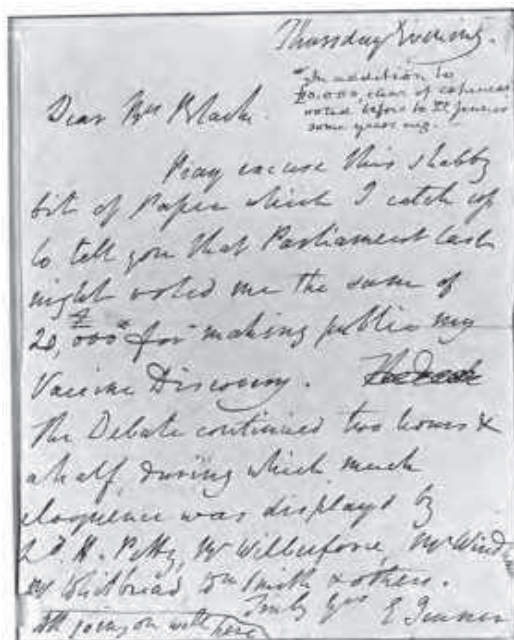 Thursday Evening.
* In addition to
£10.000 clear of expenses
voted before to Dr Jenner
some years ago.
Dear Mrs Black.
Pray excuse this shabby
bit of Paper which I catch up
to tell you that Parliament last
night voted me the sum of
20,000£* for making public my
Vaccine Discovery.
The Debate continued two hours &
a half, during which much
eloquence was displayd by
Ld. H. Petty, Mr Wilberforce, Mr Windham
Mr Whitbread Wm Smith & others.
Truly yrs E Jenner
All going on well here